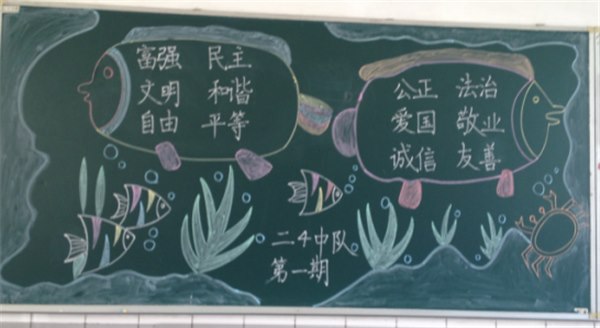 富强 民主
文明 和谐
自由 平等
公正 法治
爱国 敬业
诚信 友善
二4中队
第一期